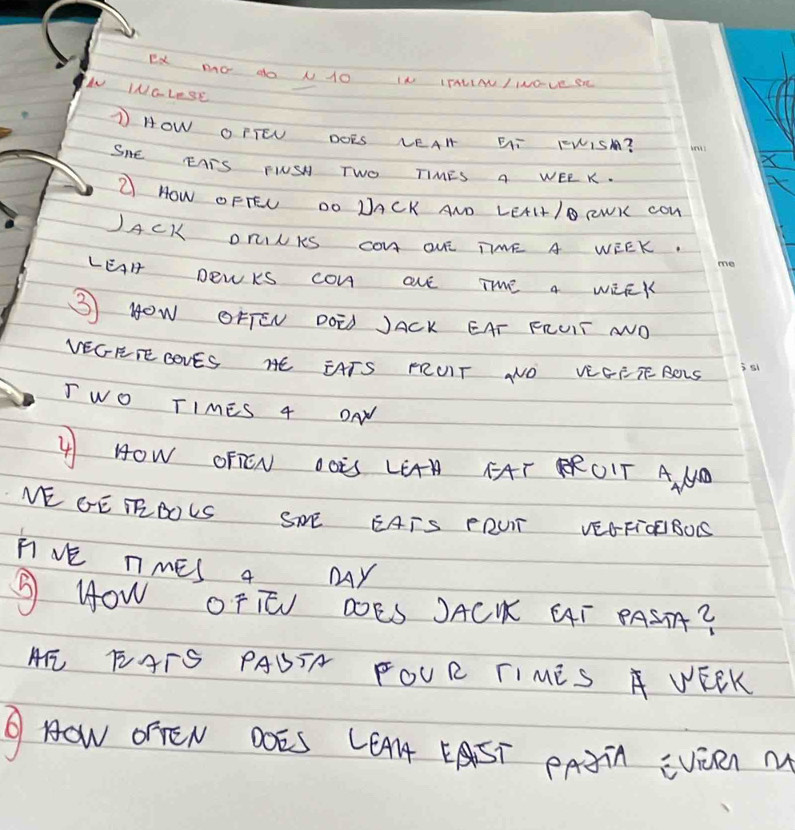 ES PAG 20 N 10 IN ITALIAN / INGLESE
IN INGLESE
1) HOW OFTEN DOES LEAH EAT FWISH?
SHE EATS FWSH TWO TIMES A WEEK.
2) HOW OFTEN DO JACK AND LEAH / DRWK COLA
JACK DRINKS COLA ONE TIME A WEEK.
LEAH DRWKS COLA ONE TIME A WEEK
3) HOW OFTEN DOES JACK EAT FRUIT AND
VEGETEBOLES HE EATS FRUIT AND VEGETEBOLS
TWO TIMES A DAY
4) HOW OFTEN DOES LEAH EAT FRUIT AND
VEGETEBOLS SHE EATS FRUIT
FIVE TIMES A DAY
5) HOW OFTEN DOES JACK EAT PASTA?
HE EATS PASTA FOUR TIMES A WEEK
6) HOW OFTEN DOES LEAH PASTA EVERI
me